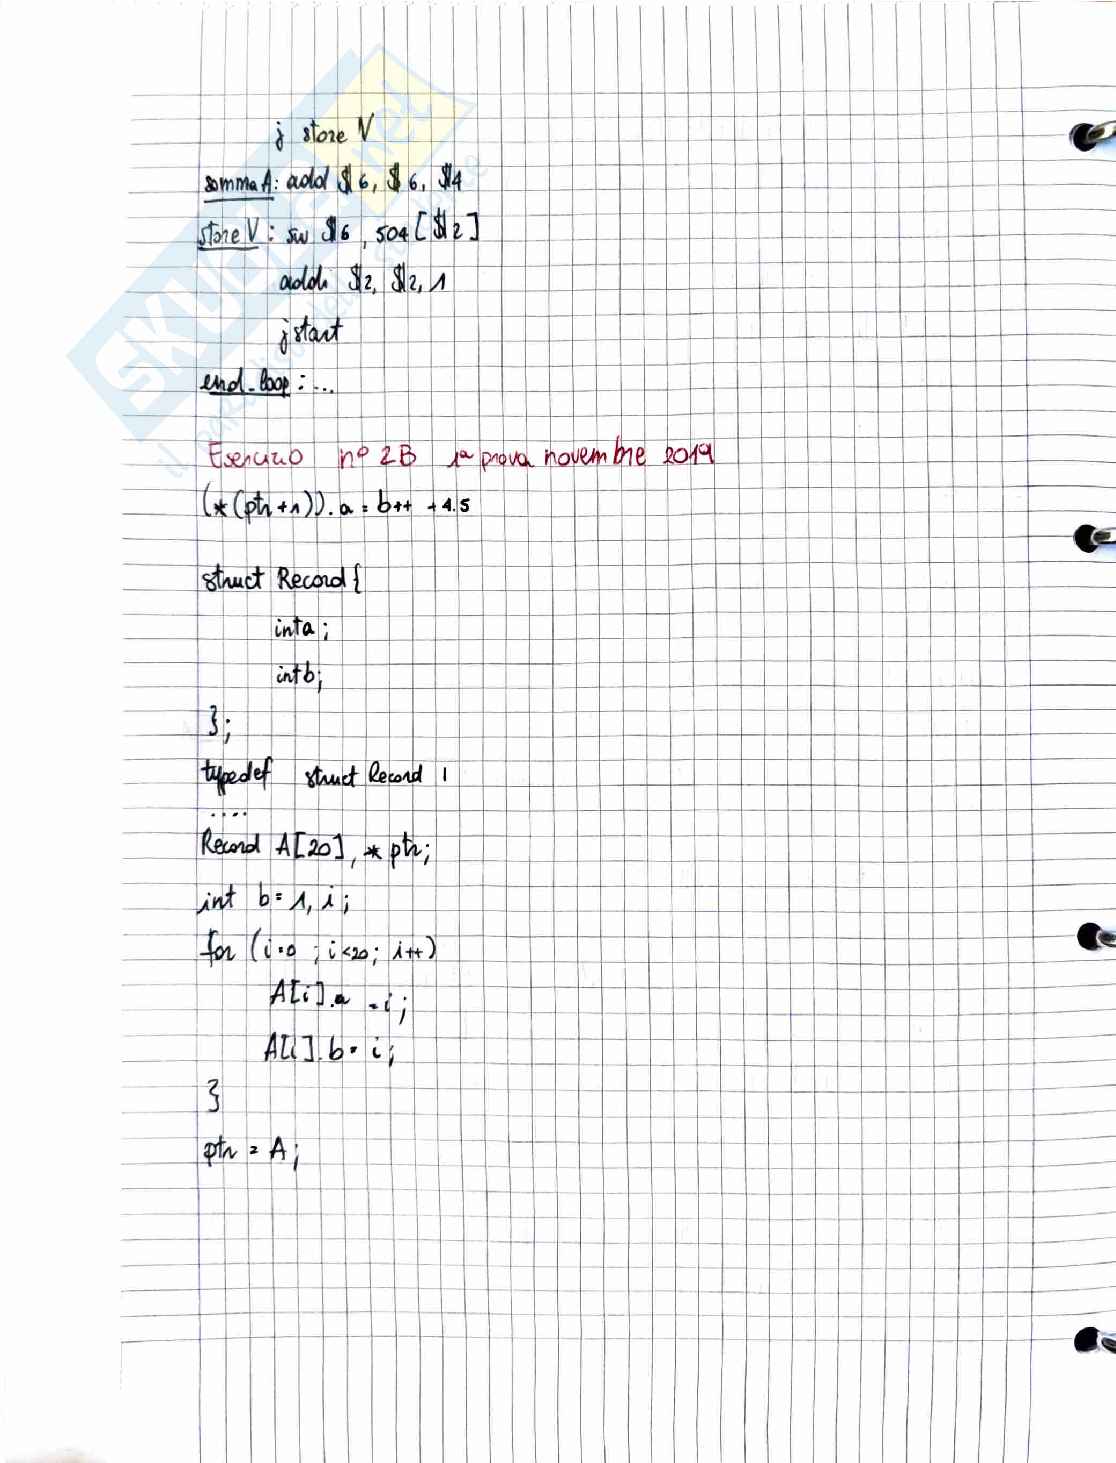 j store V
somma A: add $6, $6, $4
store V: sw $6, 504 [$2]
addi $2, $2, 1
j start
end_loop: ...
Esercizio n° 2B 1ª prova novembre 2019
(*(ptr+1)).a = b++ + 4.5
struct Record{
int a;
int b;
};
typedef struct Record
....
Record A[20], * ptr;
int b = 1, i;
for (i=0 ; i<20; i++)
A[i].a = i;
A[i].b = i;
}
ptr = A;
SKUOLA.net